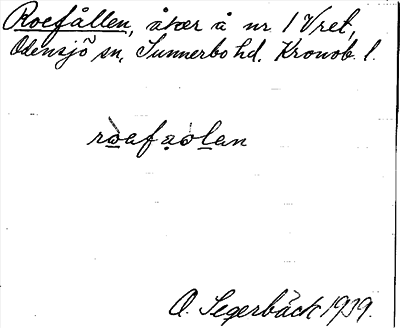 Roefållen, åker å nr 1 Vret,
Odensjö sn, Sunnerbo hd. Kronob. l.
roafaolan
O. Segerbäck 1939.